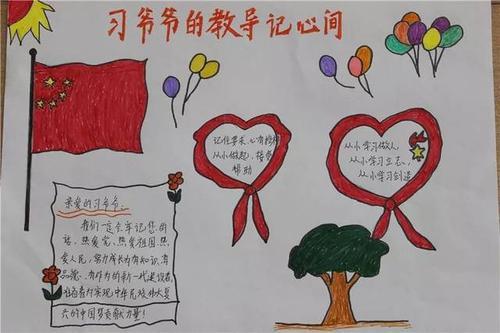 习爷爷的教导记心间
记住要求、心有榜样
从小做起、接受
帮助
从小学习做人
从小学习立志,
从小学习创造
亲爱的习爷爷:
我们一定会牢记您的
话,热爱党、热爱祖国热
爱人民,努力成长为有知识、有
品德、有作为的新一代建设者,
准备着为实现中华民族伟大复
兴的中国梦贡献力量!